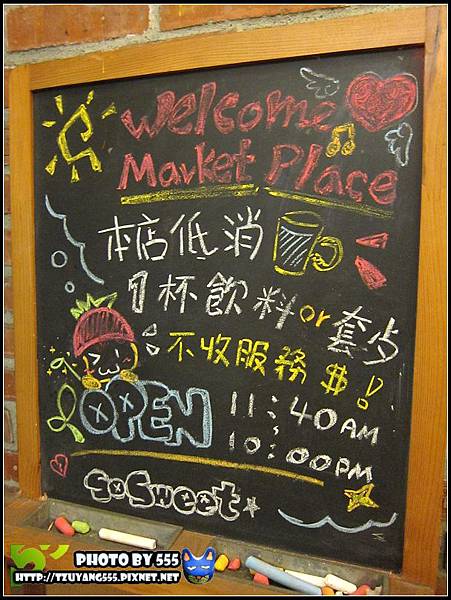 Welcome
Market Place
本店低消
1杯飲料or套歺
不收服務$!
OPEN 11:40AM
~
10:00PM
So Sweet
PHOTO BY 555
HTTP://TZUYANG555.PIXNET.NET